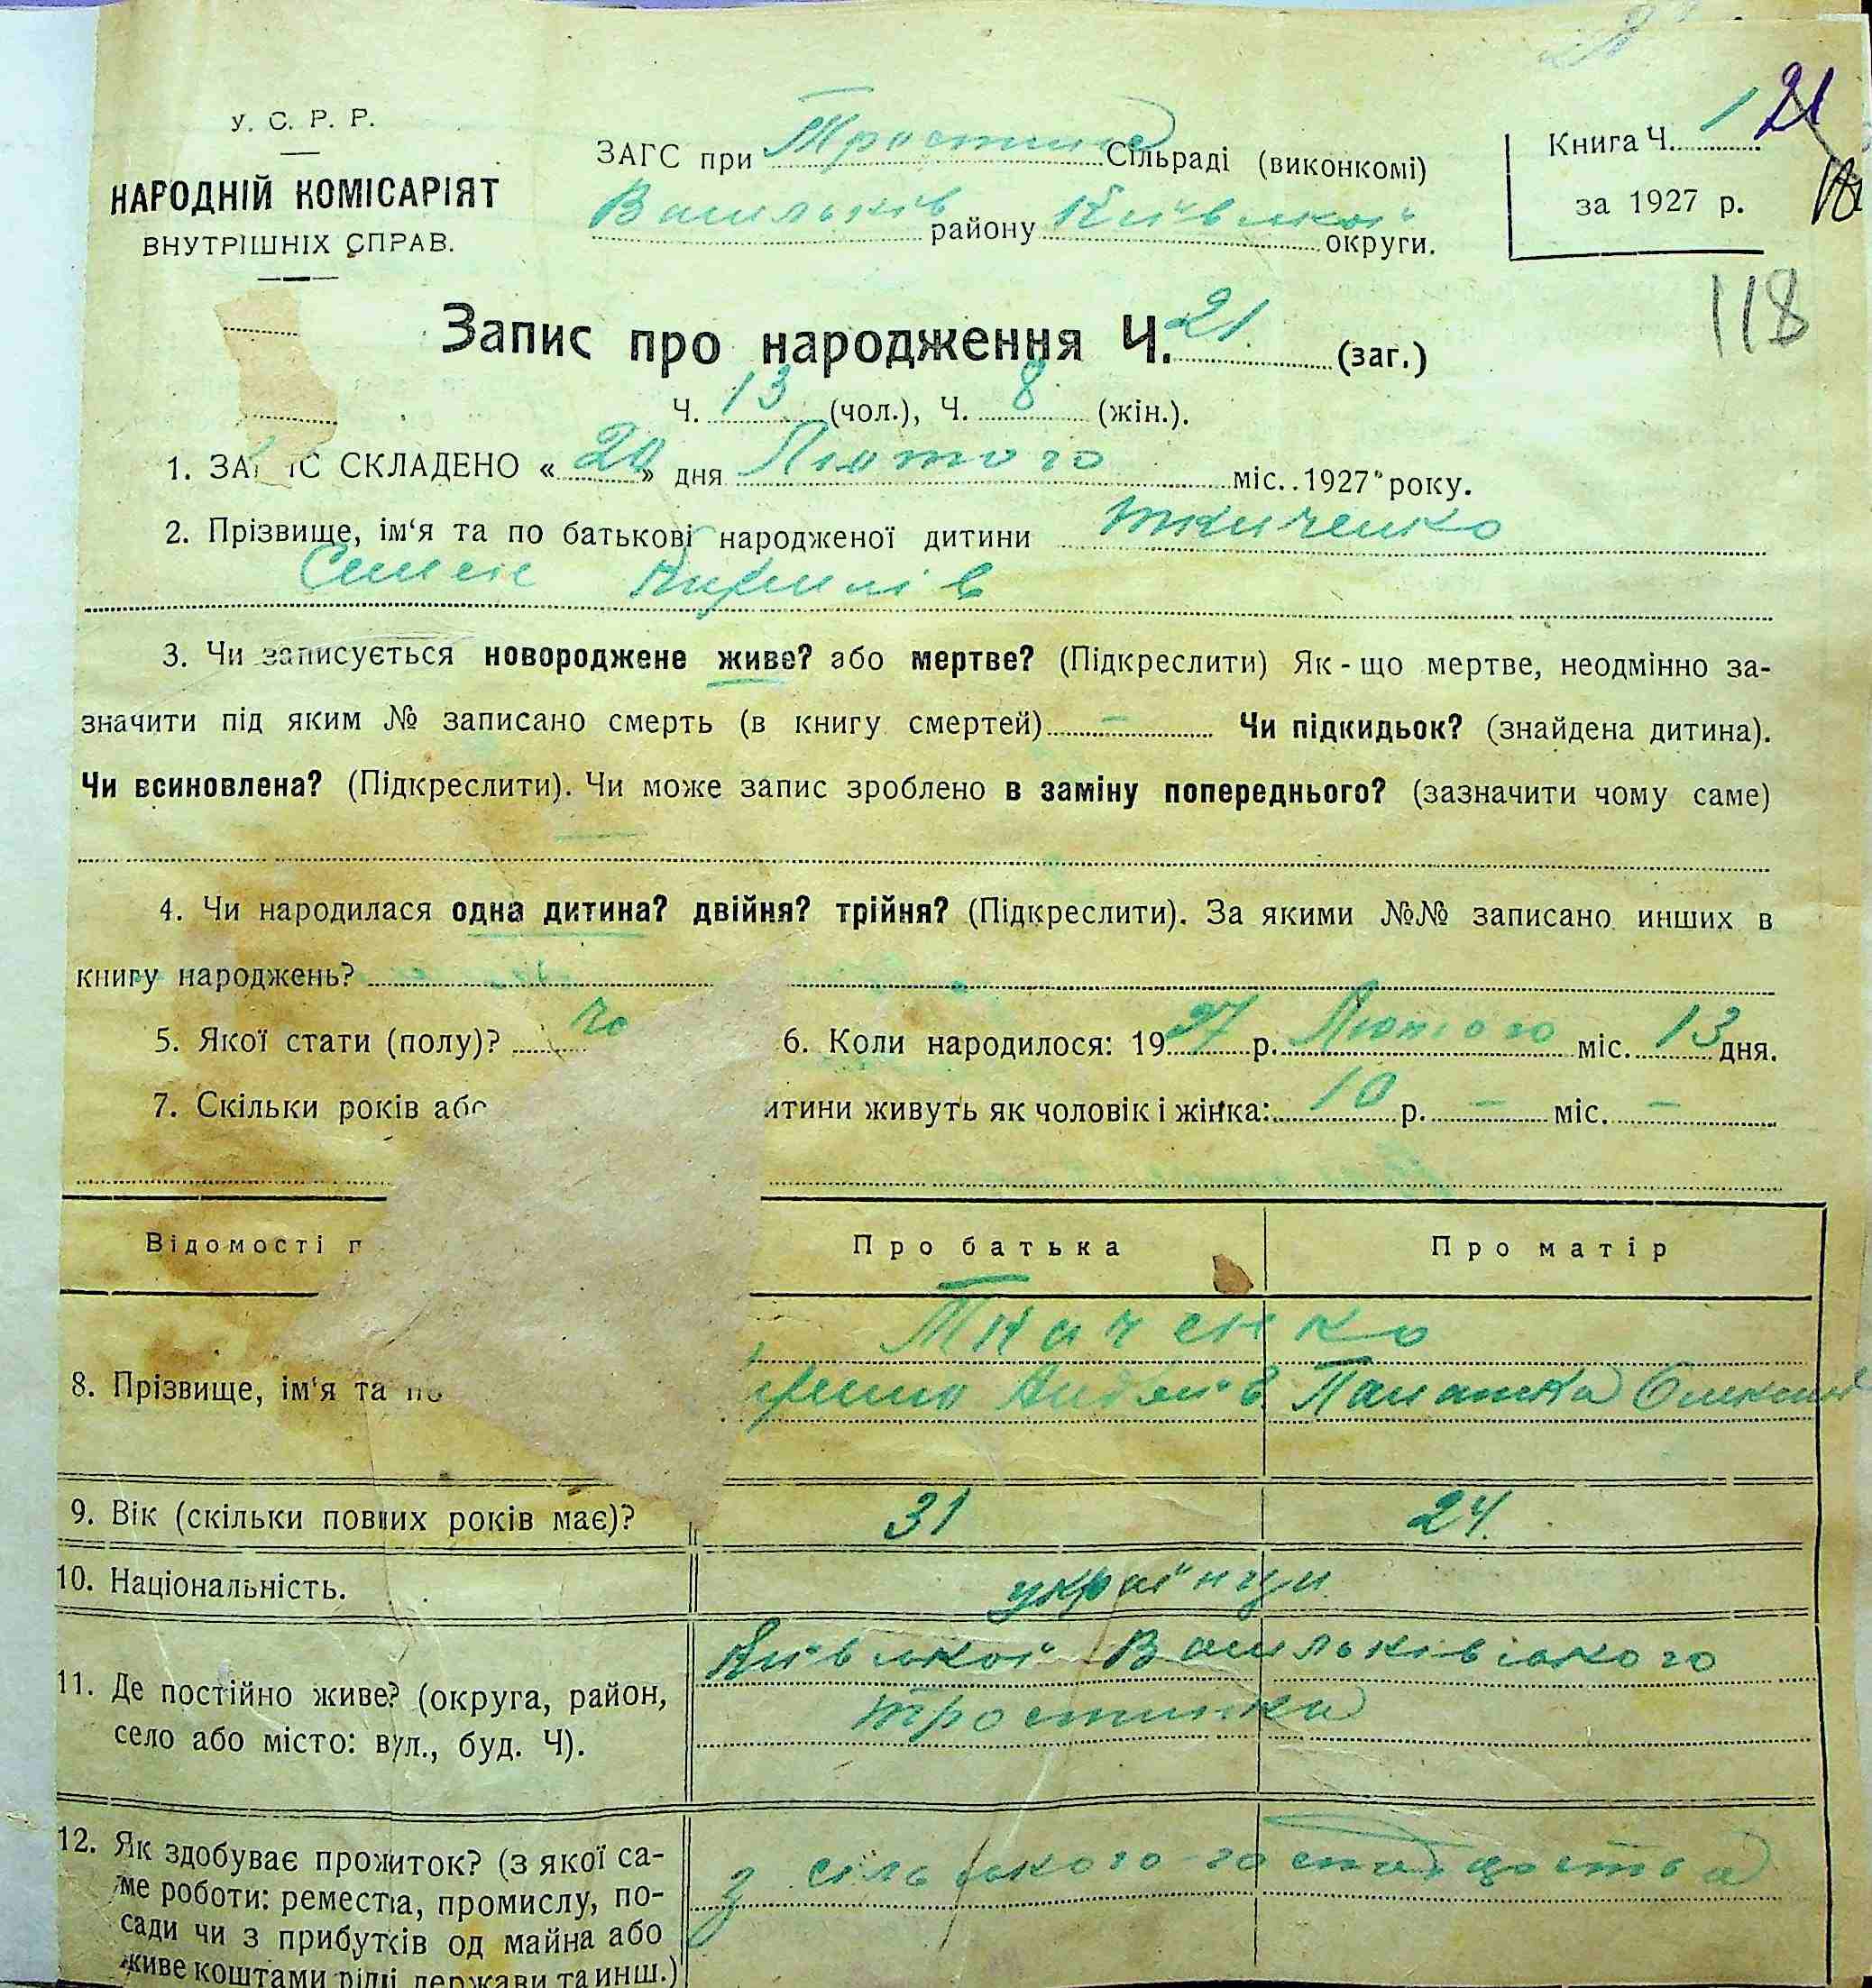 У. С. Р. Р.
НАРОДНІЙ КОМІСАРІЯТ
ВНУТРІШНІХ СПРАВ.
ЗАГС при Тростин Сільраді (виконкомі)
Васильків району Київської округи.
Книга Ч. 1 21
за 1927 р.
118
Запис про народження Ч. 21. (заг.)
Ч. 13 (чол.), Ч. 8 (жін.).
1. ЗА ІС СКЛАДЕНО « 20 » дня Лютого міс. 1927 року.
2. Прізвище, ім'я та по батькові народженої дитини Ткаченко
Семен
3. Чи записується новороджене живе? або мертве? (Підкреслити) Як-що мертве, неодмінно за-
значити під яким № записано смерть (в книгу смертей) – Чи підкидьок? (знайдена дитина).
Чи всиновлена? (Підкреслити). Чи може запис зроблено в заміну попереднього? (зазначити чому саме)
4. Чи народилася одна дитина? двійня? трійня? (Підкреслити). За якими №№ записано инших в
книгу народжень?
5. Якої стати (полу)? чо 6. Коли народилося: 1927 р. Лютого міс. 13 дня.
7. Скільки років або итини живуть як чоловік і жінка: 10 р. – міс. –
Відомості п Про батька Про матір
Ткаченко
8. Прізвище, ім'я та по Палажка
9. Вік (скільки повних років має)? 31 24.
10. Національність. українци
11. Де постійно живе? (округа, район,
село або місто: вул., буд. Ч).
Київської Васильківського
Тростинка
12. Як здобуває прожиток? (з якої са-
ме роботи: ремества, промислу, по-
сади чи з прибутків од майна або
живе коштами рідні, держави та инш.)
з сільського господарства